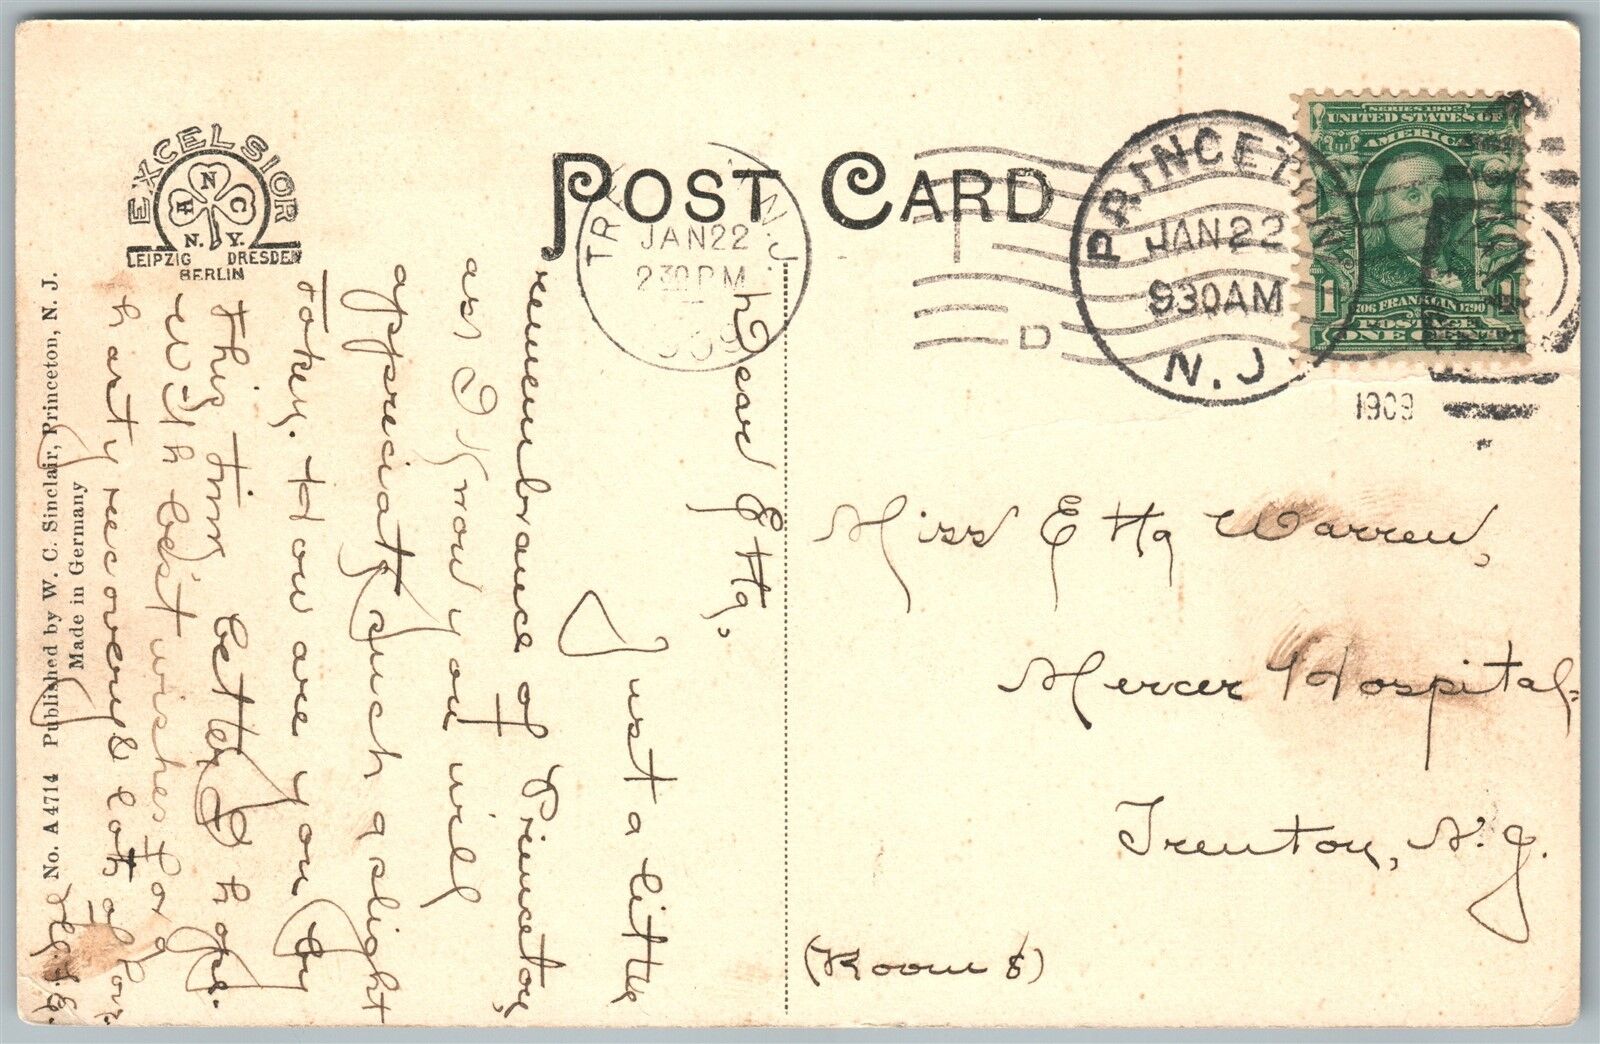 EXCELSIOR
A N C
N. Y.
LEIPZIG DRESDEN
BERLIN
POST CARD
TR N.J.
JAN 22
2 30 PM
1909
PRINCETON
JAN 22
930AM
N.J.
1909
D
SERIES 1902
UNITED STATES OF
AMERICA
1 1
1706 FRANKLIN 1790
POSTAGE
ONE CENT
Miss Etta Warren,
Mercer Hospital
Trenton, N.J.
(Room 8)
Dear Etta,
Just a little
remembrance of Princeton,
as I know you will
appreciate such a slight
token. How are you by
this time better I hope.
With best wishes for a
harty recovery & lots of love
No. A 4714 Published by W. C. Sinclair, Princeton, N. J.
Made in Germany